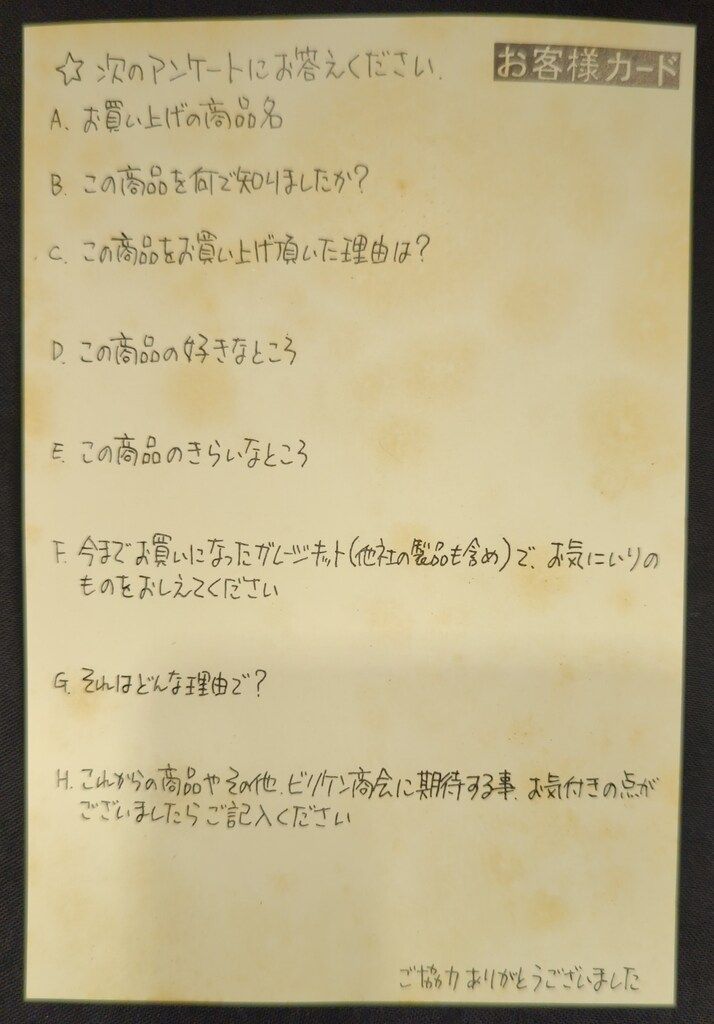 お客様カード
☆ 次のアンケートにお答えください.
A. お買い上げの商品名
B. この商品を何で知りましたか?
C. この商品をお買い上げ頂いた理由は?
D. この商品の好きなところ
E. この商品のきらいなところ
F. 今までお買いになったガレージキット(他社の製品も含め)で、お気にいりの
ものをおしえてください
G. それはどんな理由で?
H. これからの商品やその他、ビリケン商会に期待する事、お気付きの点が
ございましたらご記入ください
ご協力ありがとうございました